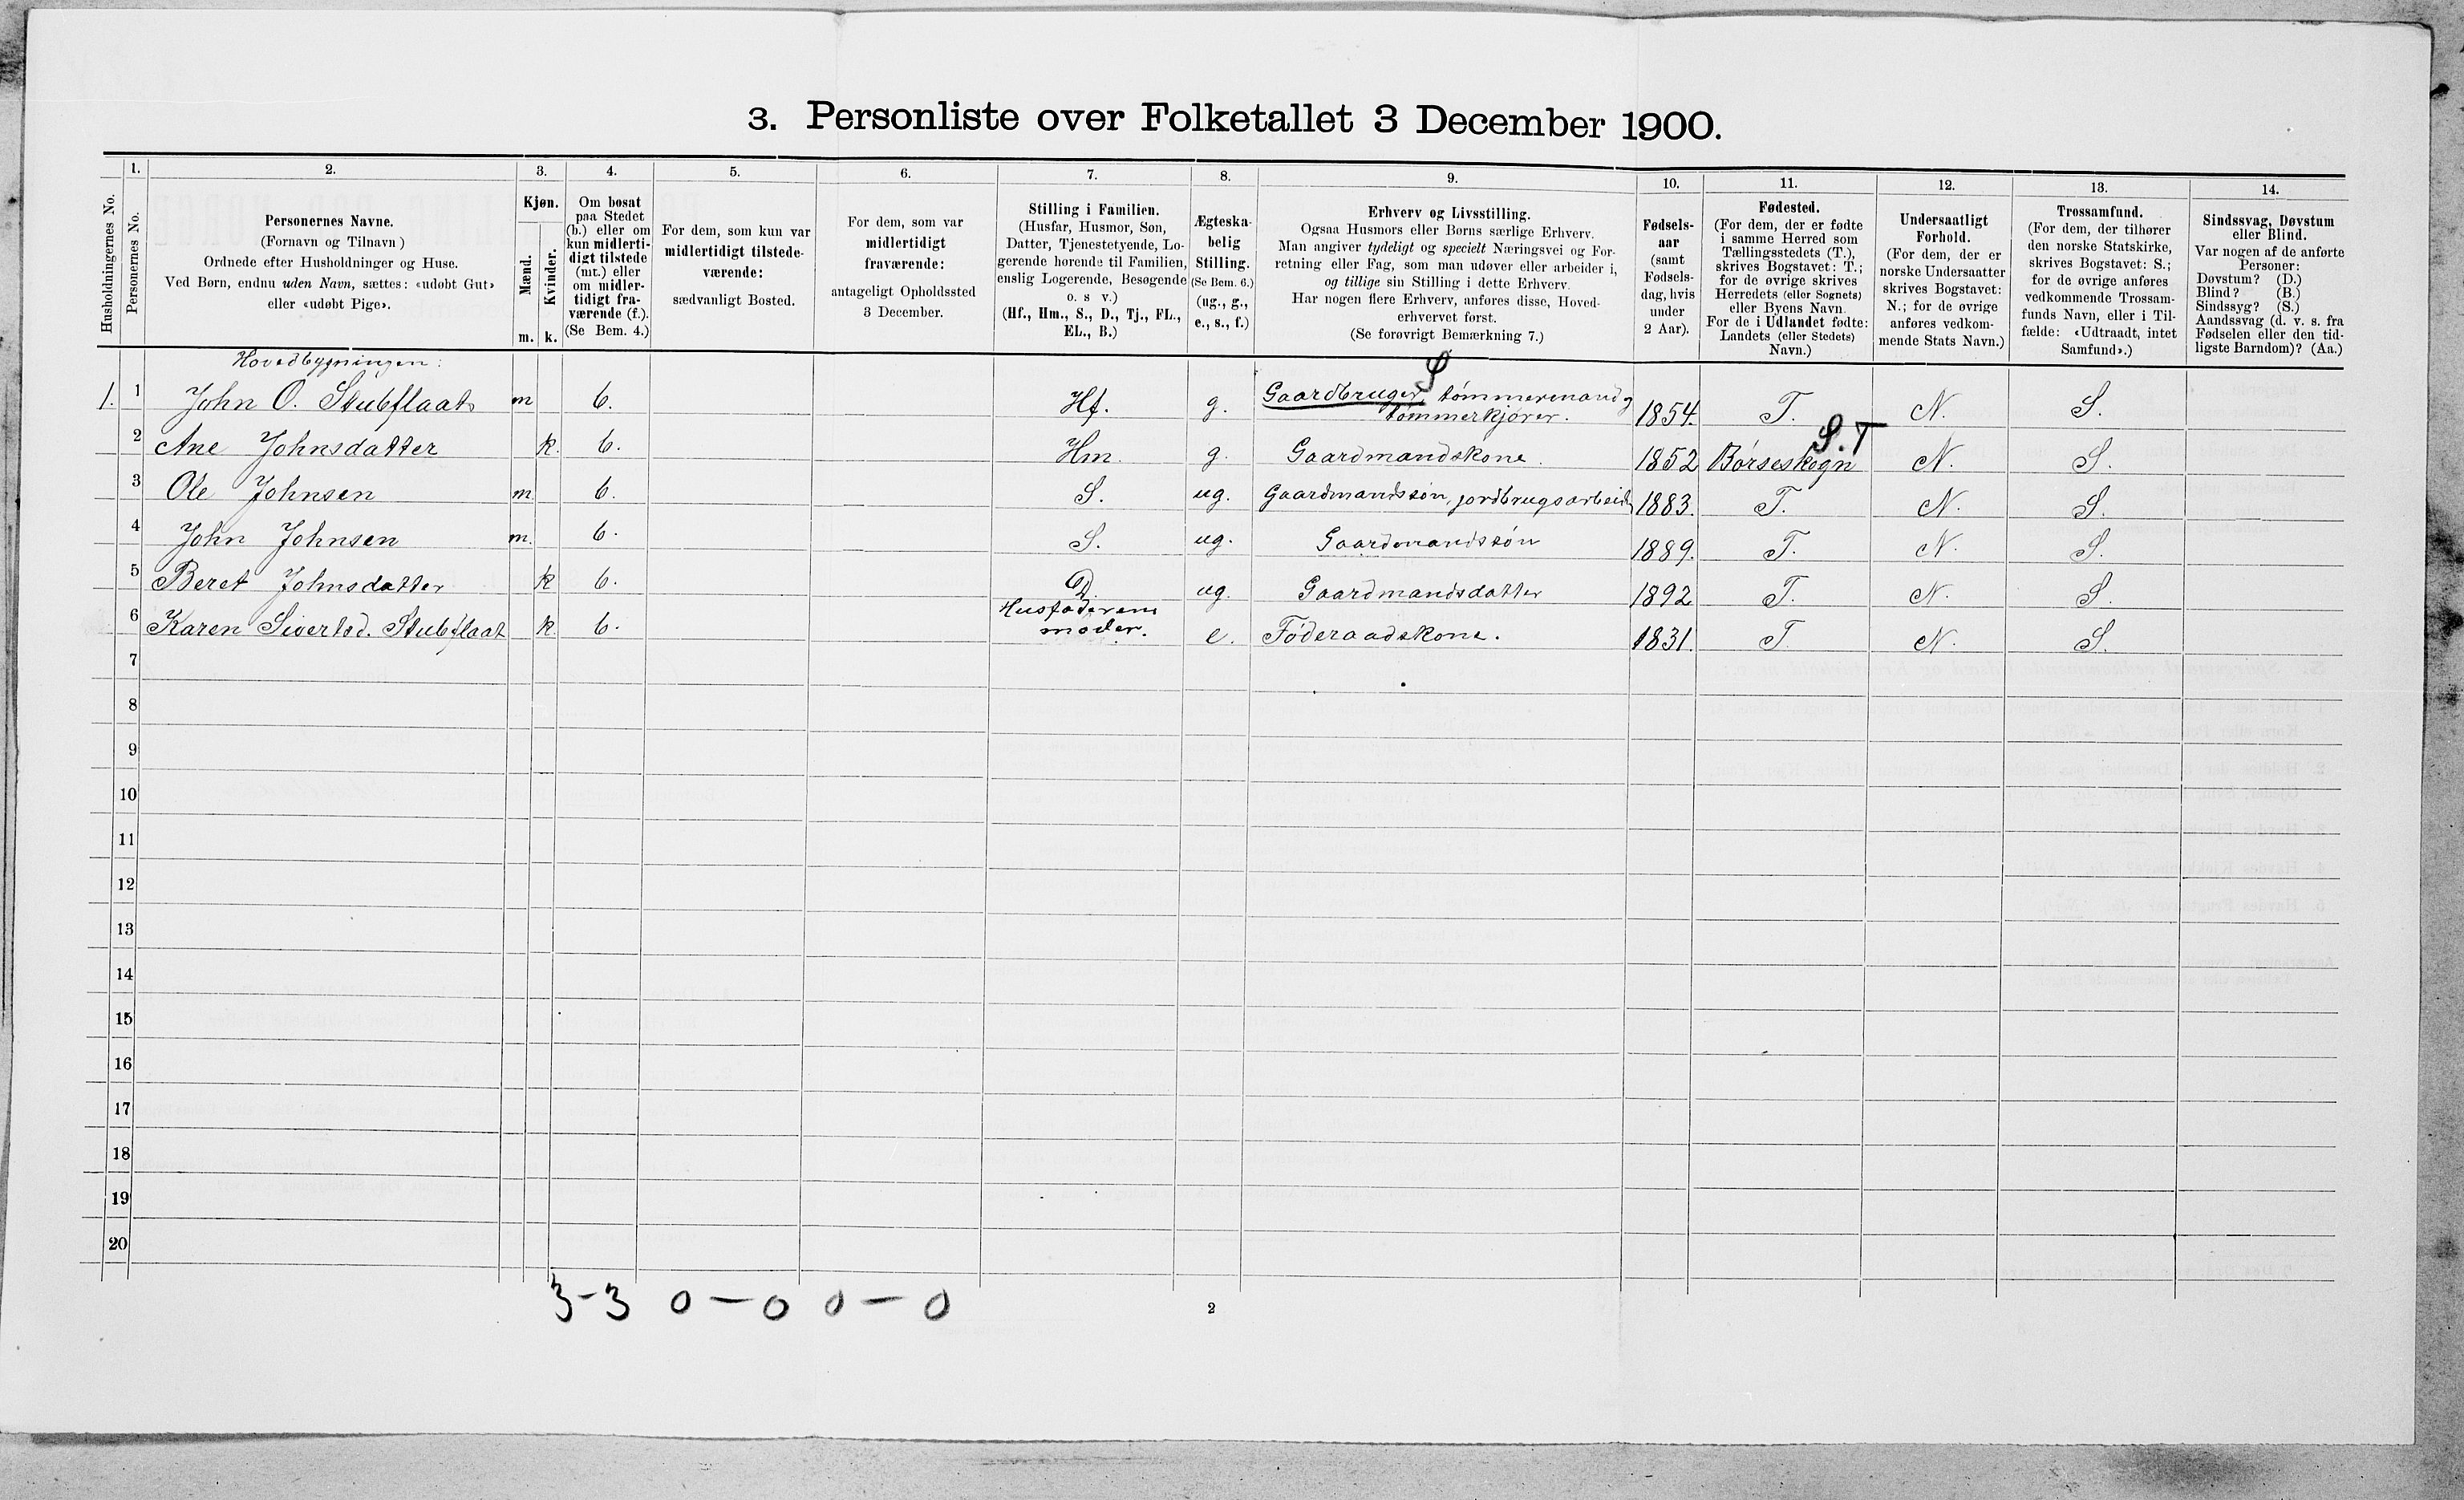 3. Personliste over Folketallet 3 December 1900.
Husholdningernes No.
1. Personernes No.
2. Personernes Navne.
(Fornavn og Tilnavn)
Ordnede efter Husholdninger og Huse.
Ved Børn, endnu uden Navn, sættes: «udøbt Gut»
eller «udøbt Pige».
3. Kjøn.
Mænd. Kvinder.
m. k.
4. Om bosat
paa Stedet
(b.) eller om
kun midlerti-
digt tilstede
(mt.) eller
om midler-
tidigt fra-
værende (f.).
(Se Bem. 4.)
5. For dem, som kun var
midlertidigt tilstede-
værende:
sædvanligt Bosted.
6. For dem, som var
midlertidigt
fraværende:
antageligt Opholdssted
3 December.
7. Stilling i Familien.
(Husfar, Husmor, Søn,
Datter, Tjenestetyende, Lo-
gerende hørende til Familien,
enslig Logerende, Besøgende
o. s v.)
(Hf., Hm., S., D., Tj., FL.,
EL., B.)
8. Ægteska-
belig
Stilling.
(Se Bem. 6.)
(ug., g.,
e., s., f.)
9. Erhverv og Livsstilling.
Ogsaa Husmors eller Børns særlige Erhverv.
Man angiver tydeligt og specielt Næringsvei og For-
retning eller Fag, som man udøver eller arbeider i,
og tillige sin Stilling i dette Erhverv.
Har nogen flere Erhverv, anføres disse, Hoved-
erhvervet først.
(Se forøvrigt Bemærkning 7.)
10. Fødsels-
aar
(samt
Fødsels-
dag, hvis
under
2 Aar).
11. Fødested.
(For dem, der er fødte
i samme Herred som
Tællingsstedets (T.),
skrives Bogstavet: T.;
for de øvrige skrives
Herredets (eller Sognets)
eller Byens Navn.
For de i Udlandet fødte:
Landets (eller Stedets)
Navn.)
12. Undersaatligt
Forhold.
(For dem, der er
norske Undersaatter
skrives Bogstavet:
N.; for de øvrige
anføres vedkom-
mende Stats Navn.)
13. Trossamfund.
(For dem, der tilhører
den norske Statskirke,
skrives Bogstavet: S.;
for de øvrige anføres
vedkommende Trossam-
funds Navn, eller i Til-
fælde: «Udtraadt, intet
Samfund».)
14. Sindssvag, Døvstum
eller Blind.
Var nogen af de anførte
Personer:
Døvstum? (D.)
Blind? (B.)
Sindssyg? (S.)
Aandssvag (d. v. s. fra
Fødselen eller den tid-
ligste Barndom)? (Aa.)
Hovedbygningen:
S
1. 1 John O. Stubflaat m b. Hf. g. Gaardbruger, tømmermand og 1854. T. N. S.
Tømmerkjører.
S. T
2 Ane Johnsdatter k. b. Hm. g. Gaardmandskone. 1852 Børseskogn N. S.
3 Ole Johnsen m. b. S. ug. Gaardmandssøn, jordbrugsarbeid 1883. T. N. S.
4 John Johnsen m. b. S. ug. Gaardmandssøn 1889. T. N. S.
5 Beret Johnsdatter k b. D. ug. Gaardmandsdatter 1892 T. N. S.
6 Karen Sivertsd. Stubflaat k b. Husfaderens e. Føderaadskone. 1831. T N. S.
moder.
7
8
9
10
11
12
13
14
15
16
17
18
19
20
3-3 0-0 0-0
2